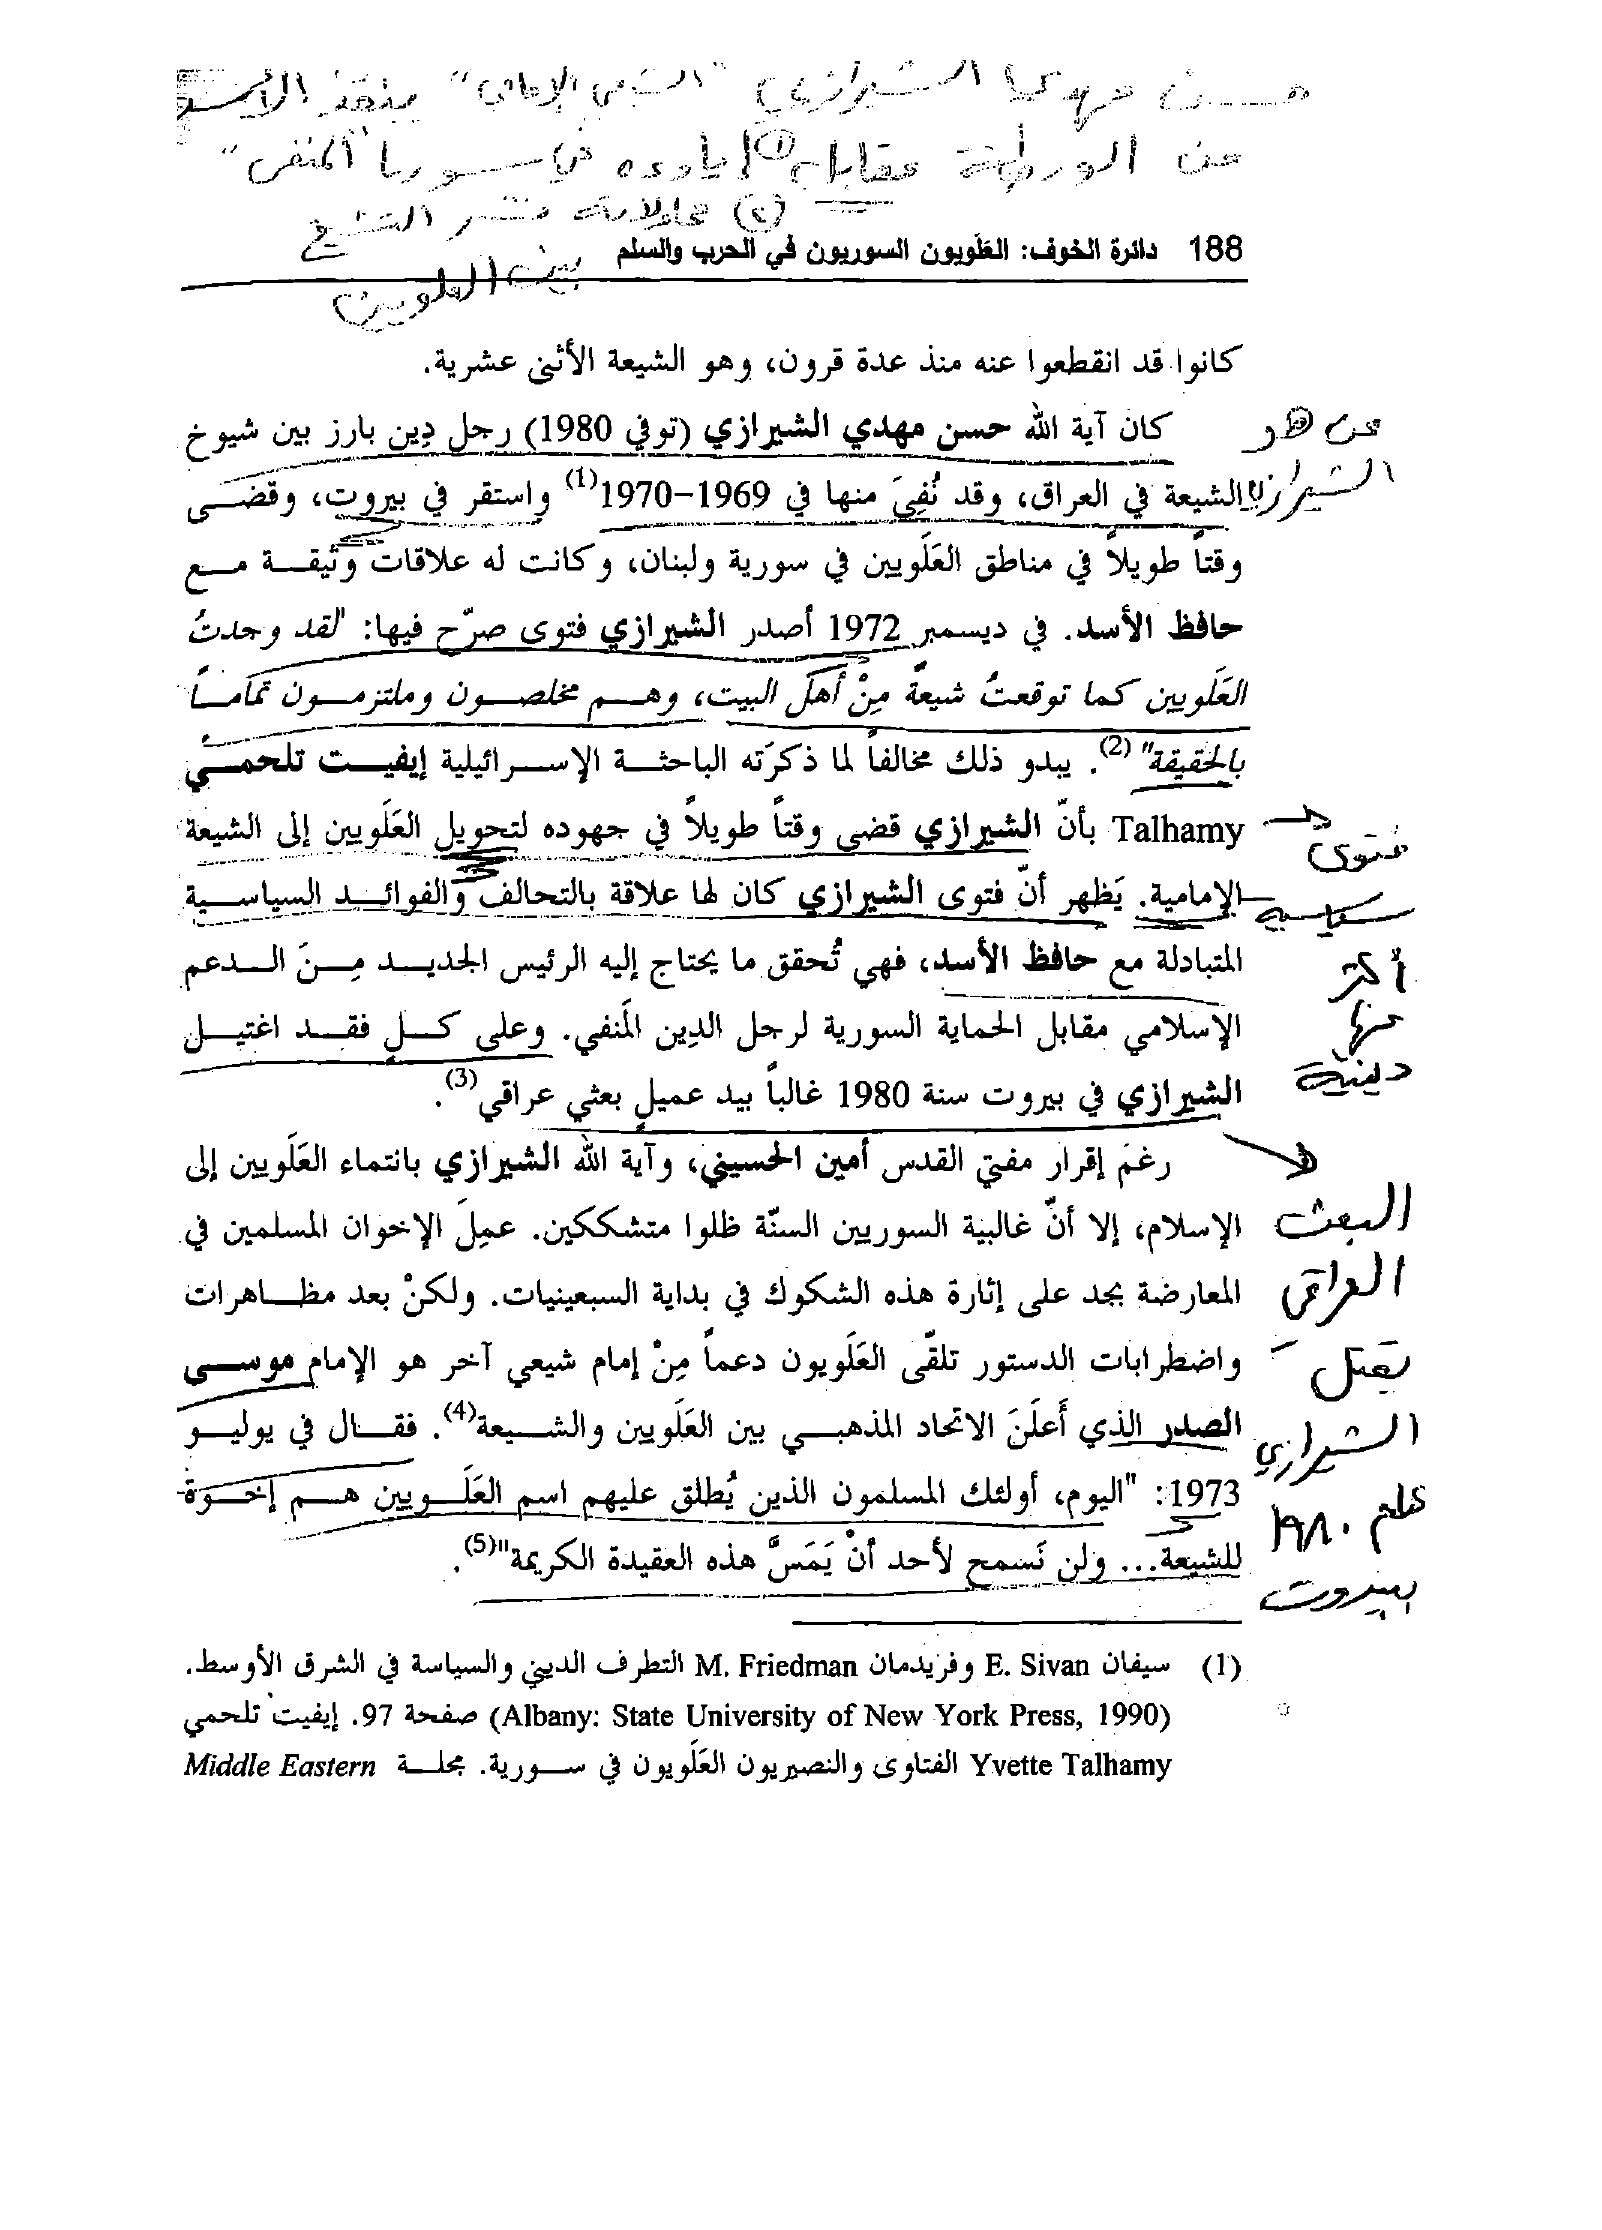 حسن مهدي الشيرازي "الشيعي الإمامي" ينقذ الأسد
من الورطة مقابل ① إيواءه في سوريا "المنفى"
② محاولة نشر التشيع
بين العلويين
188 دائرة الخوف: العَلَويون السوريون في الحرب والسلم
كانوا قد انقطعوا عنه منذ عدة قرون، وهو الشيعة الأثنى عشرية.
كان آية الله حسن مهدي الشيرازي (توفي 1980) رجل دِين بارز بين شيوخ
من هو
الشيعة في العراق، وقد نُفِيَ منها في 1969-1970(1) واستقر في بيروت، وقضى
الشيرازي
وقتاً طويلاً في مناطق العَلَويين في سورية ولبنان، وكانت له علاقات وثيقة مع
حافظ الأسد. في ديسمبر 1972 أصدر الشيرازي فتوى صرّح فيها: "لقد وجدتُ
العَلَويين كما توقعتُ شيعةً مِنْ أهل البيت، وهم مخلصون وملتزمون تماماً
بالحقيقة"(2). يبدو ذلك مخالفاً لما ذكرَته الباحثة الإسرائيلية إيفيت تلحمي
Talhamy بأنّ الشيرازي قضى وقتاً طويلاً في جهوده لتحويل العَلَويين إلى الشيعة
فتوى
الإمامية. يَظهر أنّ فتوى الشيرازي كان لها علاقة بالتحالف والفوائد السياسية
سياسية
المتبادلة مع حافظ الأسد، فهي تُحقق ما يحتاج إليه الرئيس الجديد مِنَ الدعم
أكثر
الإسلامي مقابل الحماية السورية لرجل الدِين المَنفي. وعلى كلٍ فقد اغتيل
منها
الشيرازي في بيروت سنة 1980 غالباً بيد عميلٍ بعثي عراقي(3).
دينية
رغمَ إقرار مفتي القدس أمين الحسيني، وآية الله الشيرازي بانتماء العَلَويين إلى
الإسلام، إلا أنّ غالبية السوريين السنّة ظلوا متشككين. عمِلَ الإخوان المسلمين في
البعث
المعارضة بجد على إثارة هذه الشكوك في بداية السبعينيات. ولكنْ بعد مظاهرات
العراقي
واضطرابات الدستور تلقّى العَلَويون دعماً مِنْ إمام شيعي آخر هو الإمام موسى
يقتل
الصدر الذي أَعلَنَ الاتحاد المذهبي بين العَلَويين والشيعة(4). فقال في يوليو
الشيرازي
1973: "اليوم، أولئك المسلمون الذين يُطلق عليهم اسم العَلَويين هم إخوة
عام ١٩٨٠
للشيعة... ولن نَسمح لأحد أنْ يَمَسَّ هذه العقيدة الكريمة"(5).
ببيروت
(1) سيفان E. Sivan وفريدمان M. Friedman التطرف الديني والسياسة في الشرق الأوسط.
(Albany: State University of New York Press, 1990) صفحة 97. إيفيت تلحمي
Yvette Talhamy الفتاوى والنصيريون العَلَويون في سورية. مجلة Middle Eastern